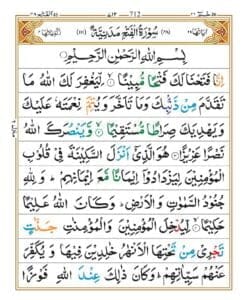 سُوْرَةُ الْفَتْحِ مَدَنِيَّةٌ
بِسْمِ اللهِ الرَّحْمٰنِ الرَّحِيْمِ
اِنَّا فَتَحْنَا لَكَ فَتْحًا مُّبِيْنًا ۙ لِّيَغْفِرَ لَكَ اللهُ مَا
تَقَدَّمَ مِنْ ذَنْۢبِكَ وَمَا تَاَخَّرَ وَيُتِمَّ نِعْمَتَهٗ عَلَيْكَ
وَيَهْدِيَكَ صِرَاطًا مُّسْتَقِيْمًا ۙ وَّيَنْصُرَكَ اللهُ
نَصْرًا عَزِيْزًا هُوَ الَّذِيْۤ اَنْزَلَ السَّكِيْنَةَ فِيْ قُلُوْبِ
الْمُؤْمِنِيْنَ لِيَزْدَادُوْۤا اِيْمَانًا مَّعَ اِيْمَانِهِمْ ؕ وَلِلّٰهِ
جُنُوْدُ السَّمٰوٰتِ وَالْاَرْضِ ؕ وَكَانَ اللهُ عَلِيْمًا
حَكِيْمًا ۙ لِّيُدْخِلَ الْمُؤْمِنِيْنَ وَالْمُؤْمِنٰتِ جَنّٰتٍ
تَجْرِيْ مِنْ تَحْتِهَا الْاَنْهٰرُ خٰلِدِيْنَ فِيْهَا وَيُكَفِّرَ
عَنْهُمْ سَيِّاٰتِهِمْ ؕ وَكَانَ ذٰلِكَ عِنْدَ اللهِ فَوْزًا